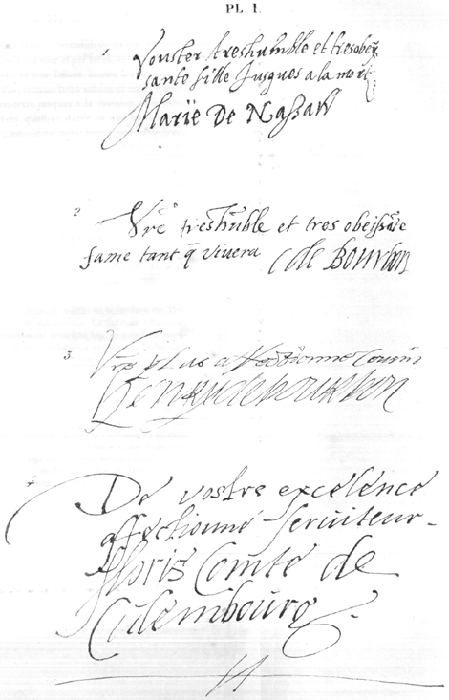 PL. I.
1
Vouster treshumble et tresobeis
sante fille jusques a la mort
Marïe De Nassaw
2
Vre treshūble et tres obeissāte
fame tant q̄ vivera C de Bourbon
3
Vre plus affectionne Cousin
Henry de bourbon
4
De vostre excelence
affectionné serviteur
floris Comte de
Culembourg